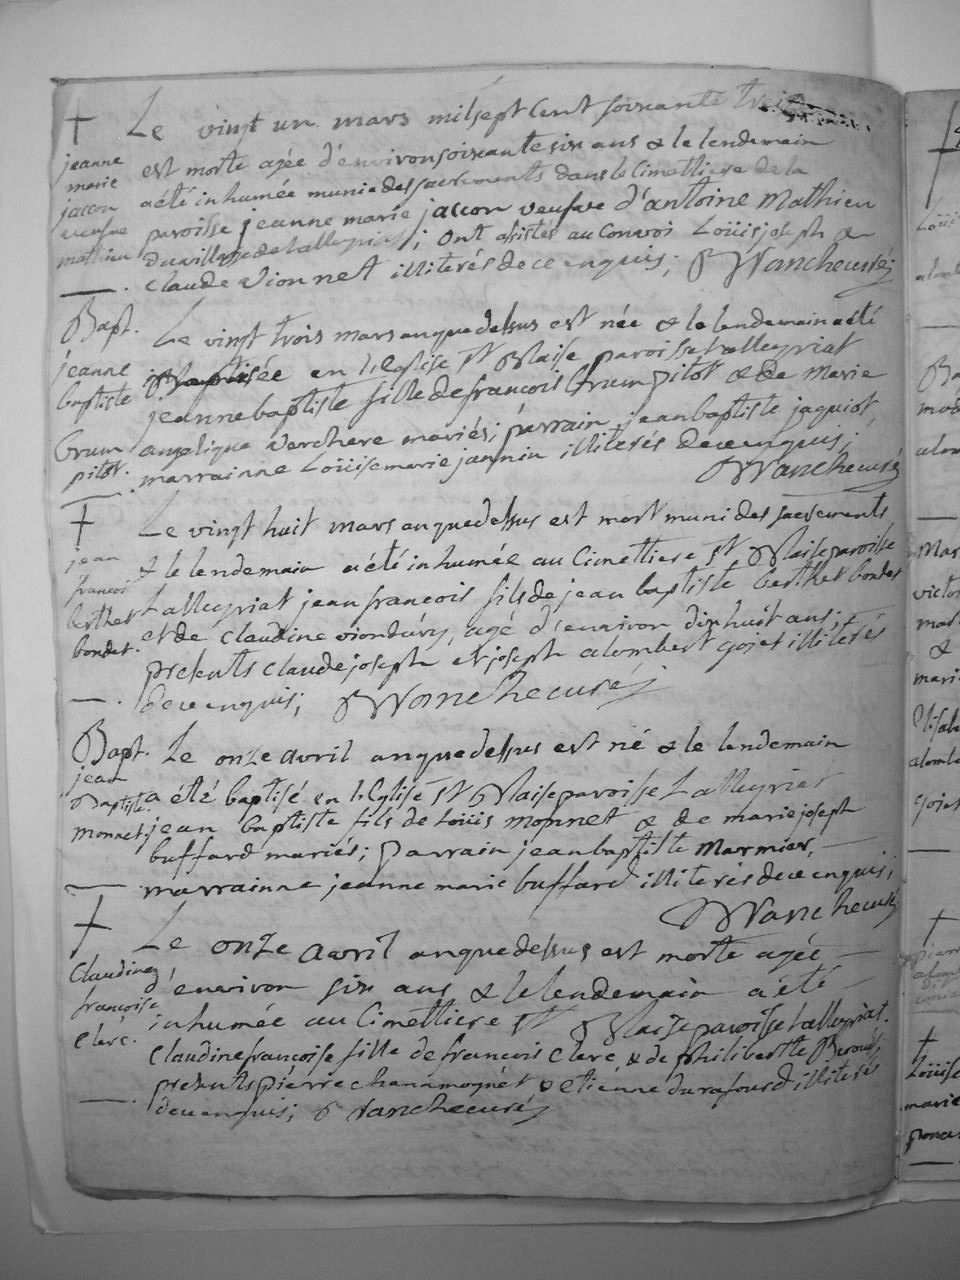 †
jeanne
marie
jaccon
veufve
mathieu
Le vingt un mars milsept cent soixante trois
est morte agée d'environ soixante six ans & le lendemain
a été inhumée munie des sacrements dans le Cimettiere de la
paroisse jeanne marie jaccon veufve d'antoine Mathieu
du village de talleyriat; ont assistés au convoi Loüis joseph &
Claude vionnet illiterés de ce enquis; Blanche curé
Bapt.
jeanne
baptiste
Brun
pitot.
Le vingt trois mars an que dessus est née & le lendemain a été
Baptisée en l'Eglise St Blaise paroisse talleyriat
jeanne baptiste fille de francois Brun pitot & de Marie
angelique verchere mariés; parrain jean baptiste jaquiot,
marrainne Loüise marie jannin illiterés de ce enquis;
Blanche curé
†
jean
francois
berthet
bondet.
Le vingt huit mars an que dessus est mort muni des sacrements
& le lendemain a été inhumée au Cimettiere St Blaise paroisse
talleyriat jean francois fils de jean baptiste berthet bondet
et de Claudine viondury, agé d'environ dix huit ans;
presents claude joseph et joseph alombert gojet illiterés
de ce enquis; Blanche curé
Bapt.
jean
Baptiste
monnet.
Le onze avril an que dessus est né & le lendemain
a été baptisé en l'Eglise St Blaise paroisse talleyriat
jean baptiste fils de Loüis monnet & de marie joseph
buffard mariés; parrain jean baptiste Marmier,
marrainne jeanne marie buffard illiterés de ce enquis;
Blanche curé
†
Claudine
francoise
Clerc.
Le onze avril an que dessus est morte agée
d'environ six ans & le lendemain a été
inhumée au Cimettiere St Blaise paroisse talleyriat.
Claudine francoise fille de francois Clerc & de philiberte
presents pierre & etienne durafourd illiterés
de ce enquis; Blanche curé